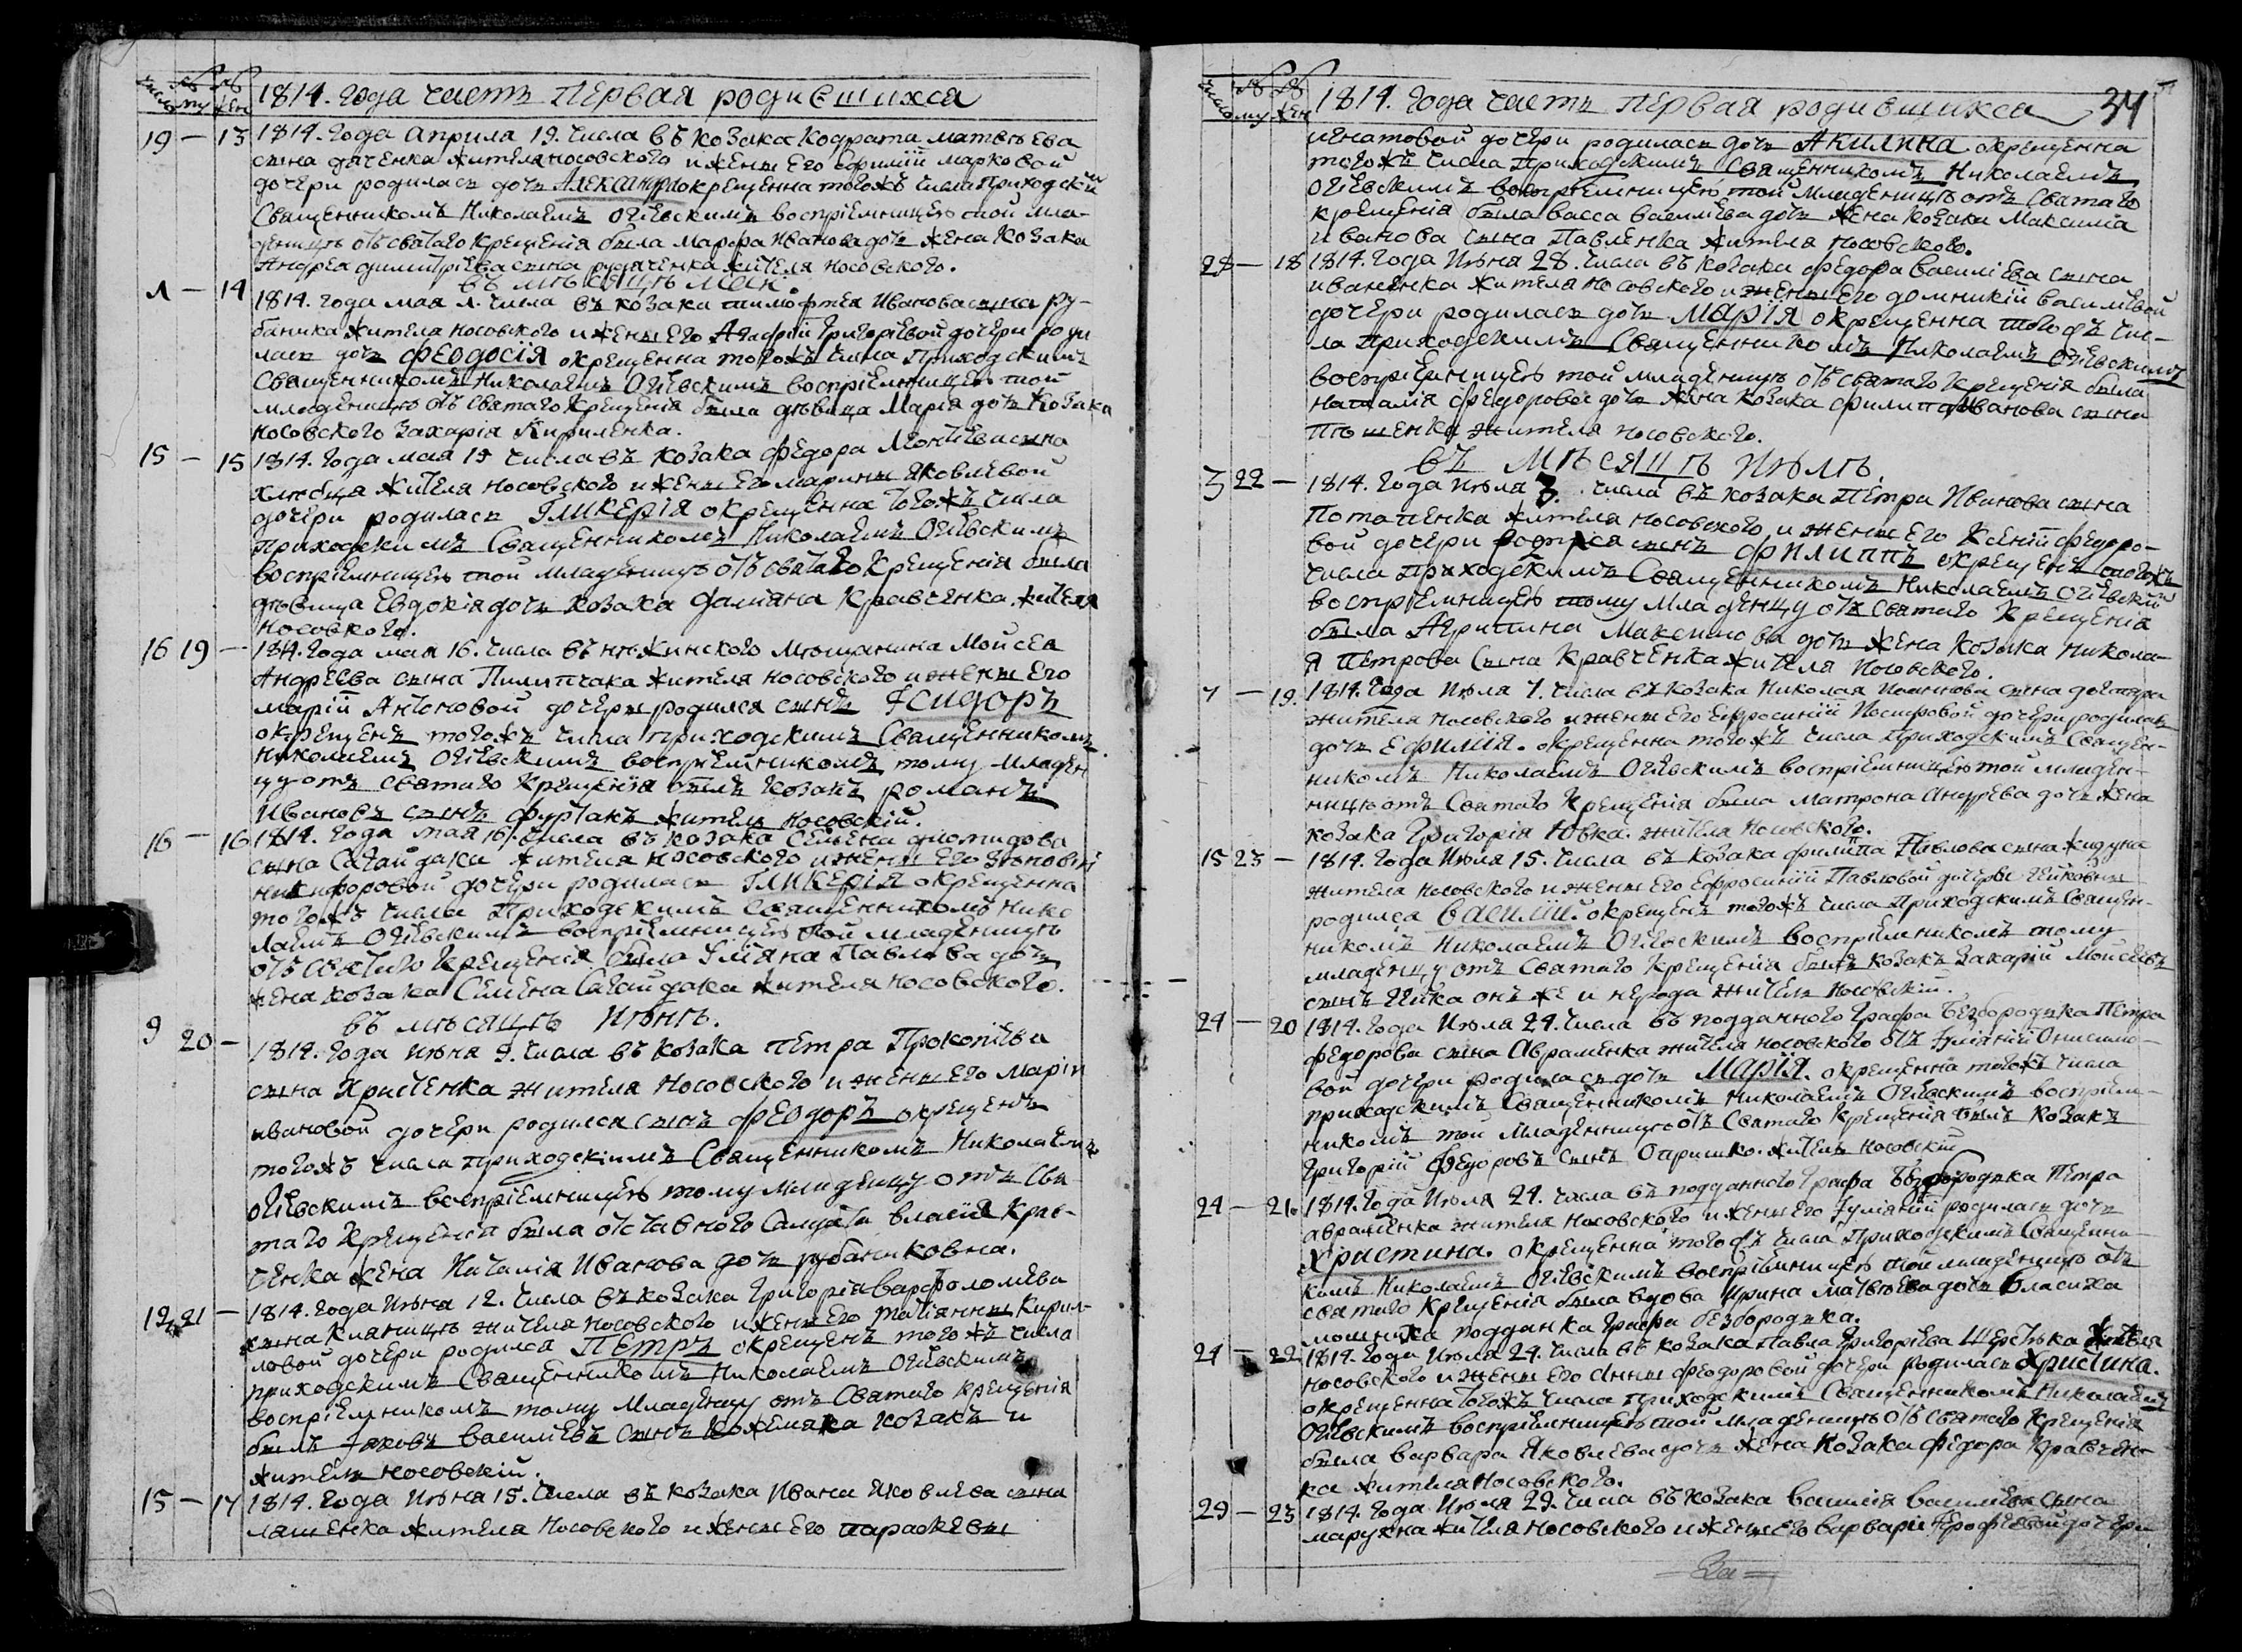 числа №му №жен 1814. Года часть Первая родившихся
19 — 13 1814. Года Априла 19. числа въ козака Кодрата матвѣева
сына дяченка жителя носовского и жены его Ефимiи марковой
дочери родилась дочь Александра окрещенна тогожъ числа приходскимъ
Священникомъ Николаемъ Огіевскимъ воспріемницею той мла-
деницѣ отъ святаго Крещенія была Марѳа Иванова дочь жена козака
Андрея димитріева сына жителя носовского.
въ мѣсяцѣ Маи.
1 — 14 1814. Года мая 1. числа въ козака тимофтея Иванова сына ру-
баника жителя носовского и жены его Агафіи Григоріевой дочери роди
лась дочь Феодосія окрещенна тогожъ числа Приходскимъ
Священникомъ Николаемъ Огіевскимъ воспріемницею той
младеницѣ отъ Святаго Крещенія была дѣвица Марія дочь Козака
Носовского Захарія Кириленка.
15 — 15 1814. Года мая 15 числа въ козака Федора Леонтіева сына
жителя Носовского и жены его марины Яковлевой
дочери родилась Гликерія окрещенна тогожъ числа
Приходскимъ Священникомъ Николаемъ Огіевскимъ
воспріемницею той Младеницѣ отъ святаго Крещенія была
дѣвица Евдокія дочь козака даміана Кравченка жителя
носовского.
16 19 — 1814. Года мая 16. числа въ нѣжинского Мѣщанина Мойсея
Андреева сына Пилипчака жителя носовского и жены его
маріи Антоновой дочери родился сынъ Ісидоръ
окрещенъ тогожъ числа приходскимъ Священникомъ
Николаемъ Огіевскимъ воспріемникомъ тому младен
цу отъ святаго Крещенія былъ козакъ романъ
Ивановъ сынъ житель Носовскій.
16 — 16 1814. Года мая 16. числа въ козака Семена диомидова
сына Сагайдака жителя носовского и жены его Зѣновіи
никифоровой дочери родилась Гликерія окрещенна
тогожъ числа Приходскимъ священникомъ Нико
лаемъ Огіевскимъ воспріемницею той младеницѣ
отъ святаго Крещенія была Уліяна Павлова дочь
жена козака Семена Сагайдака жителя носовского.
въ мѣсяцѣ Июнѣ.
9 20 — 1814. Года июня 9. числа въ козака петра Прокопіева
сына Христенка жителя Носовского и жены его Маріи
ивановой дочери родился сынъ Феодоръ окрещенъ
тогожъ числа приходскимъ Священникомъ Николаемъ
Огіевскимъ воспріемницею тому младенцу отъ Свя-
таго Крещенія была отставного Салдата власія Крав-
ченка жена Наталія Иванова дочь рубаниковна.
12 21 — 1814. Года Июня 12. числа въ козака Григорія варфоломѣева
сына жителя Носовского и жены его татіанны Кирил-
ловой дочери родился Петръ окрещенъ тогожъ числа
приходскимъ Священникомъ Николаемъ Огіевскимъ
воспріемникомъ тому Младенцу отъ Святаго крещенія
былъ Іаковъ василіевъ сынъ Кожемяка козакъ и
житель носовскій.
15 — 17 1814. Года Июня 15. числа въ козака Ивана Яковлева сына
жителя Носовского и жены его параскевы
числа №му №жен 1814. Года часть первая родившихся 34
игнатовой дочери родилась дочь Акилина окрещенна
тогожъ числа Приходскимъ Священникомъ Николаемъ
Огіевскимъ воспріемницею той Младеницѣ отъ Святаго
крещенія была васса василіева дочь жена козака Максима
иванова сына Павленка жителя Носовского.
28 — 18 1814. Года Июня 28. числа въ козака федора василіева сына
иваненка жителя носовского и жены его домникіи василіевой
дочери родилась дочь Марія окрещенна тогожъ чис-
ла Приходскимъ Священникомъ Николаемъ Огіевскимъ
воспріемницею той младеницѣ отъ святаго Крещенія была
наталія федорова дочь жена козака филипа Иванова сына
жителя носовского.
въ мѣсяцѣ Июлѣ.
3 22 — 1814. Года июля 3. числа въ козака Петра Иванова сына
Потапенка жителя носовского и жены его Ксеніи федоро-
вой дочери родился сынъ Филиппъ окрещенъ тогожъ
числа Приходскимъ Священникомъ Николаемъ Огіевскимъ
воспріемницею тому Младенцу отъ святаго Крещенія
была Агрипина Максимова дочь жена козака Никола-
я петрова сына Кравченка жителя носовского.
7 — 19. 1814. Года Июля 7. числа въ козака Николая сына
жителя Носовского и жены его Ефросиніи дочери родилась
дочь Ефимія. окрещенна тогожъ числа Приходскимъ Священ-
никомъ Николаемъ Огіевскимъ воспріемницею той младен-
ницѣ отъ Святаго Крещенія была Матрона Андрѣева дочь жена
козака Григорія Ювка. жителя Носовского.
15 23 — 1814. Года Июля 15. числа въ козака филиппа Павлова сына жидуна
жителя носовского и жены его Ефросиніи Павловой дочери
родился василій окрещенъ тогожъ числа Приходскимъ Священ-
никомъ Николаемъ Огіевскимъ воспріемникомъ тому
младенцу отъ Святаго Крещенія былъ козакъ Захарій Мойсѣевъ
сынъ Гейка онъ же и нерода житель Носовскій.
24 — 20 1814. Года Июля 24. числа въ подданного Графа Безбородька Петра
федорова сына Авраменка жителя носовского отъ Іуліяніи Онисимо-
вой дочери родилась дочь Марія. окрещенна тогожъ числа
приходскимъ Священникомъ Николаемъ Огіевскимъ воспріем-
никомъ той Младенницѣ отъ Святаго Крещенія былъ козакъ
Григорій Федоровъ сынъ Опришко. житель Носовскій
24 — 21. 1814. Года Июля 24. числа въ подданного Графа Безбородька Петра
авраменка жителя Носовского и жены его Іуліяніи родилась дочь
Христина. окрещенна тогожъ числа Приходскимъ Священни-
комъ Николаемъ Огіевскимъ воспріемницею той младеницѣ отъ
святаго Крещенія была вдова Ирина Матвѣева дочь
подданка Графа безбородька.
24 — 22 1814. Года Июля 24. числа въ козака Павла Григоріева жителя
носовского и жены его Анны феодоровой дочери родилась Христина.
окрещенна тогожъ числа приходскимъ Священникомъ Николаемъ
Огіевскимъ воспріемницею той младеницѣ отъ святаго Крещенія
была варвара Яковлева дочь жена Козака Федора Кравчен-
ка жителя Носовского.
29 — 23 1814. Года Июля 29. числа въ козака василія василіева сына
жителя Носовского и жены его варвары дочери